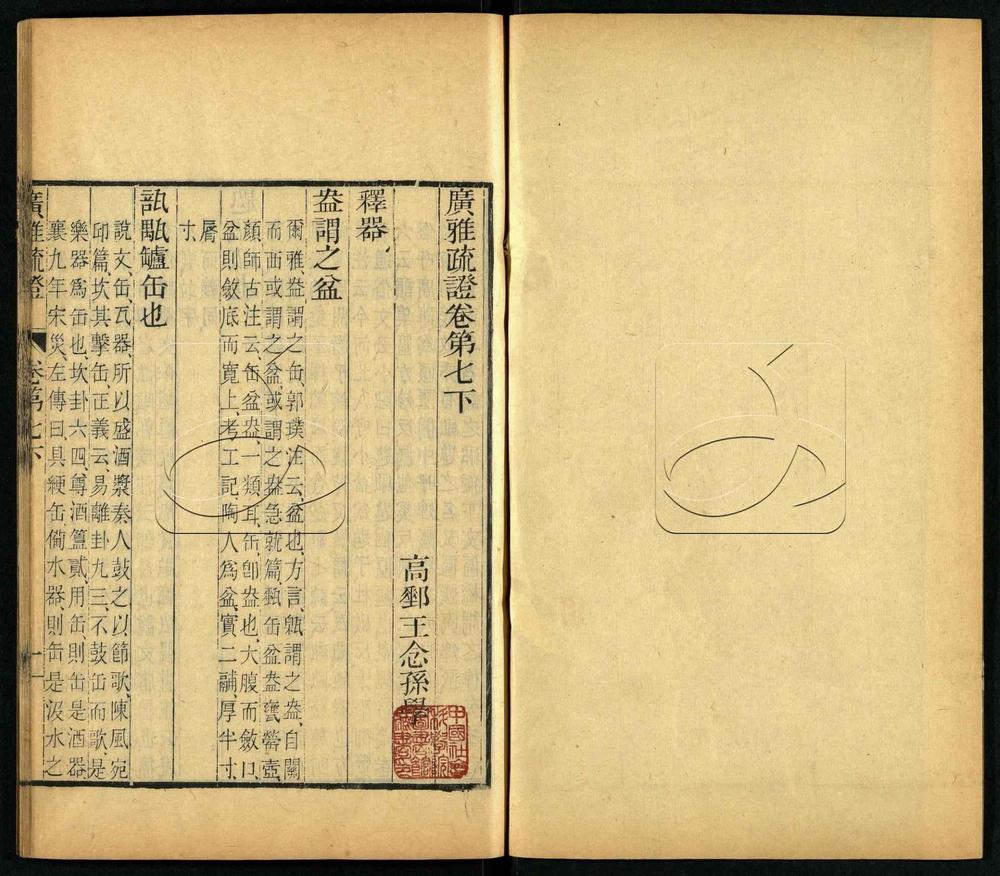 廣雅疏證卷第七下
高郵王念孫學
釋器
盎謂之盆
爾雅盎謂之缶郭璞注云盆也方言㼜謂之盎自關
而西或謂之盆或謂之盎急就篇甀缶盆盎甕罃壺
顏師古注云缶盆盎一類耳缶卽盎也大腹而斂口
盆則斂底而寬上考工記陶人爲盆實二鬴厚半寸
脣
寸
缶也
說文缶瓦器所以盛酒漿秦人鼓之以節歌陳風宛
邱篇坎其擊缶正義云易離卦九三不鼓缶而歌是
樂器爲缶也坎卦六四尊酒簋貳用缶則缶是酒器
襄九年宋災左傳曰具綆缶備水器則缶是汲水之
廣雅疏證
卷第七下
一
中國社會